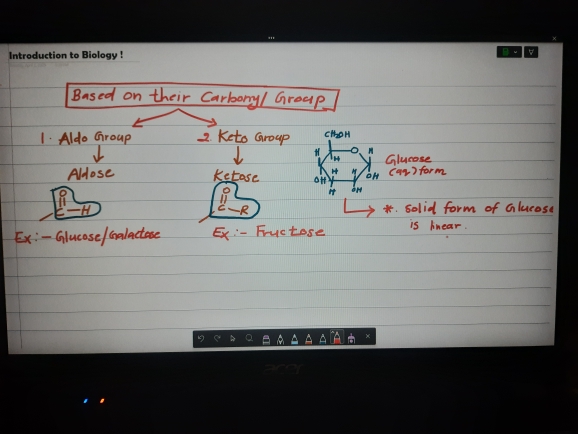 Introduction to Biology !
Based on their Carbonyl Group
1. Aldo Group
2. Keto Group
Aldose
Ketose
O
C-H
O
C-R
Ex:- Glucose/Galactose
Ex:- Fructose
CH₂OH
H
O
H
H
H
OH
OH
H
OH
Glucose
(aq.) form
*. Solid form of Glucose
is linear.
acer